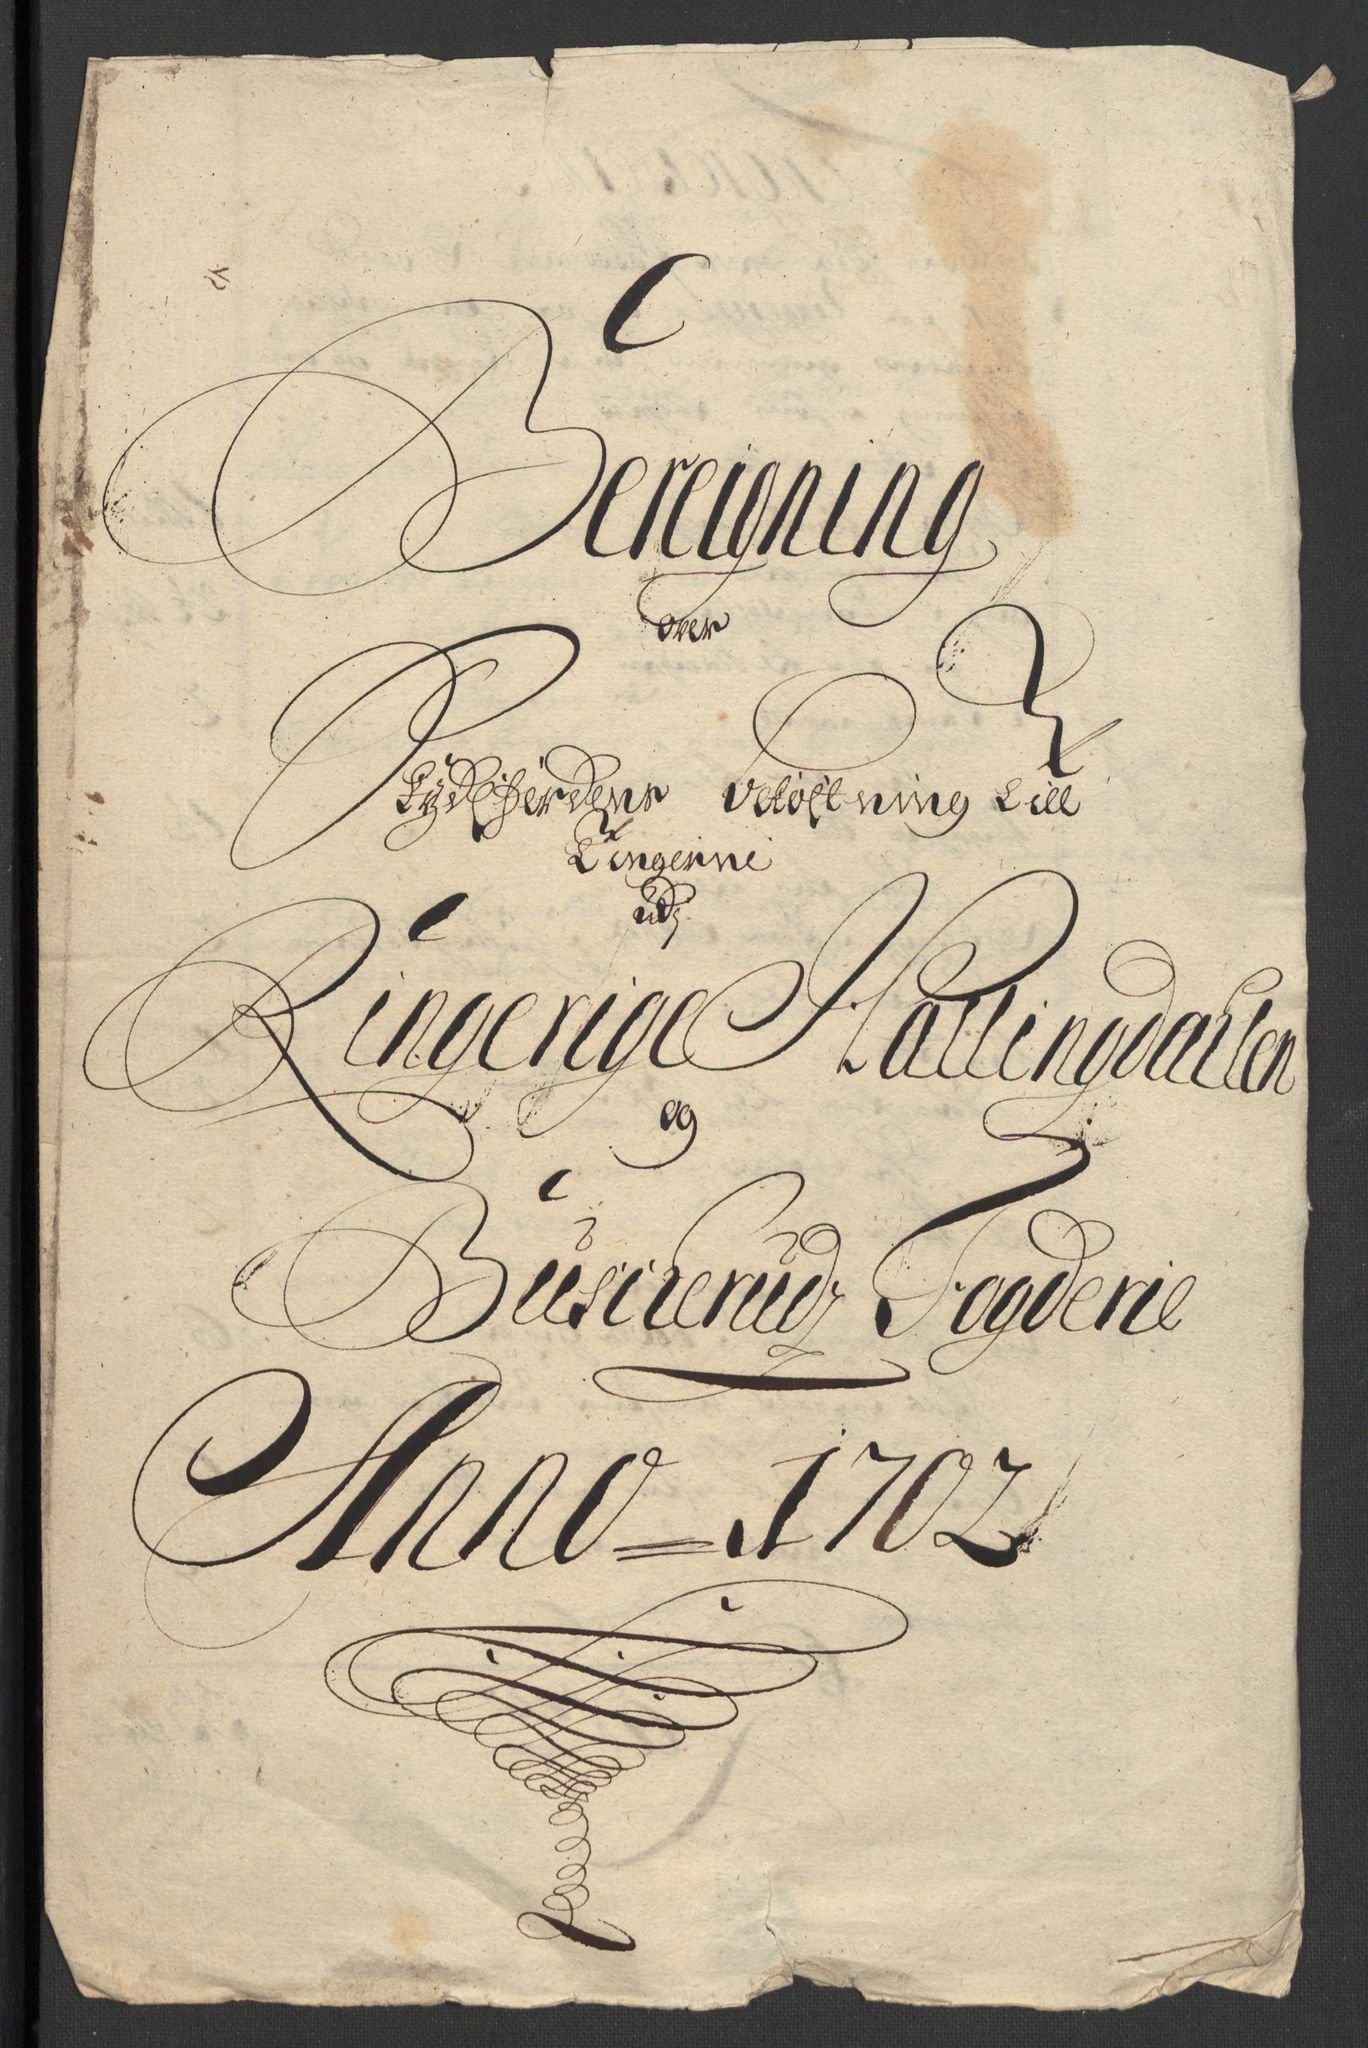 Bereigning
over
Skydsferdens bekostning till
Tingerne
udj
Ringerige Hallingdallen
og
Buscherudz Fogderie
Anno = 1702